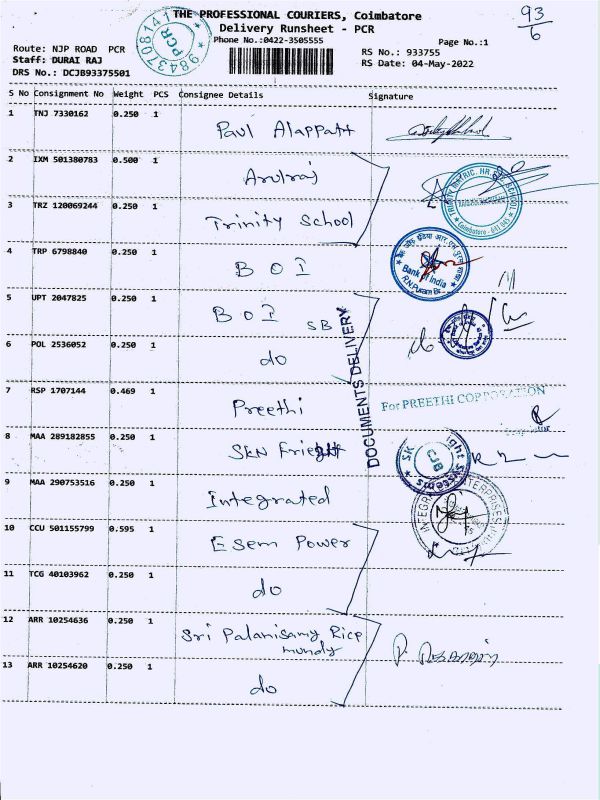 THE PROFESSIONAL COURIERS, Coimbatore
93/6
Delivery Runsheet - PCR
9843708141
PCR
Phone No.:0422-3505555
Page No.:1
Route: NJP ROAD PCR
RS No.: 933755
Staff: DURAI RAJ
RS Date: 04-May-2022
DRS No.: DCJB93375501
S No Consignment No Weight PCS Consignee Details Signature
1 TNJ 7330162 0.250 1 Paul Alappatt
2 IXM 501380783 0.500 1 Arulraj
TRINITY MATRIC. HR. SEC. SCHOOL
3 TRZ 120069244 0.250 1 Trinity School
4 TRP 6798840 0.250 1 BOI
Bank of India
R.N.Puram
5 UPT 2047825 0.250 1 BOI SB
6 POL 2536052 0.250 1 do
DOCUMENTS DELIVERY
7 RSP 1707144 0.469 1 Preethi
For PREETHI CORPORATION
8 MAA 289182855 0.250 1 SKN Frieght
CJB
9 MAA 290753516 0.250 1 Integrated
10 CCU 501155799 0.595 1 Esem Power
11 TCG 40103962 0.250 1 do
12 ARR 10254636 0.250 1 Sri Palanisamy Rice
mundy
13 ARR 10254620 0.250 1 do